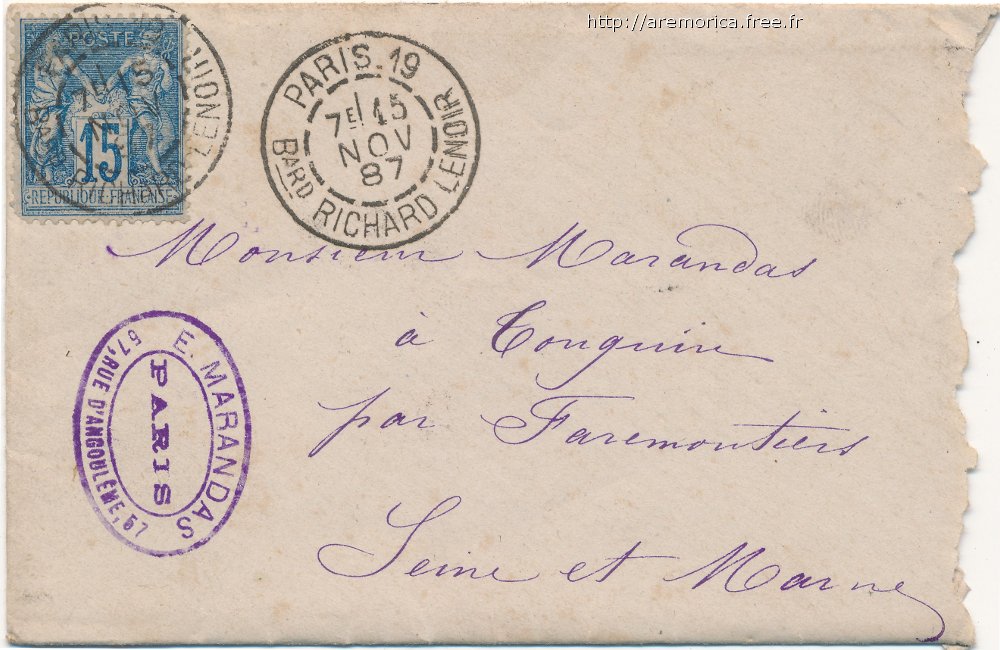 http://aremorica.free.fr
POSTES
15
REPUBLIQUE FRANÇAISE
PARIS. 19
7E 15
NOV
87
Bard RICHARD LENOIR
Monsieur Marandas
à Touquin
par Faremoutiers
Seine et Marne
E. MARANDAS
PARIS
57, RUE D'ANGOULÊME, 57